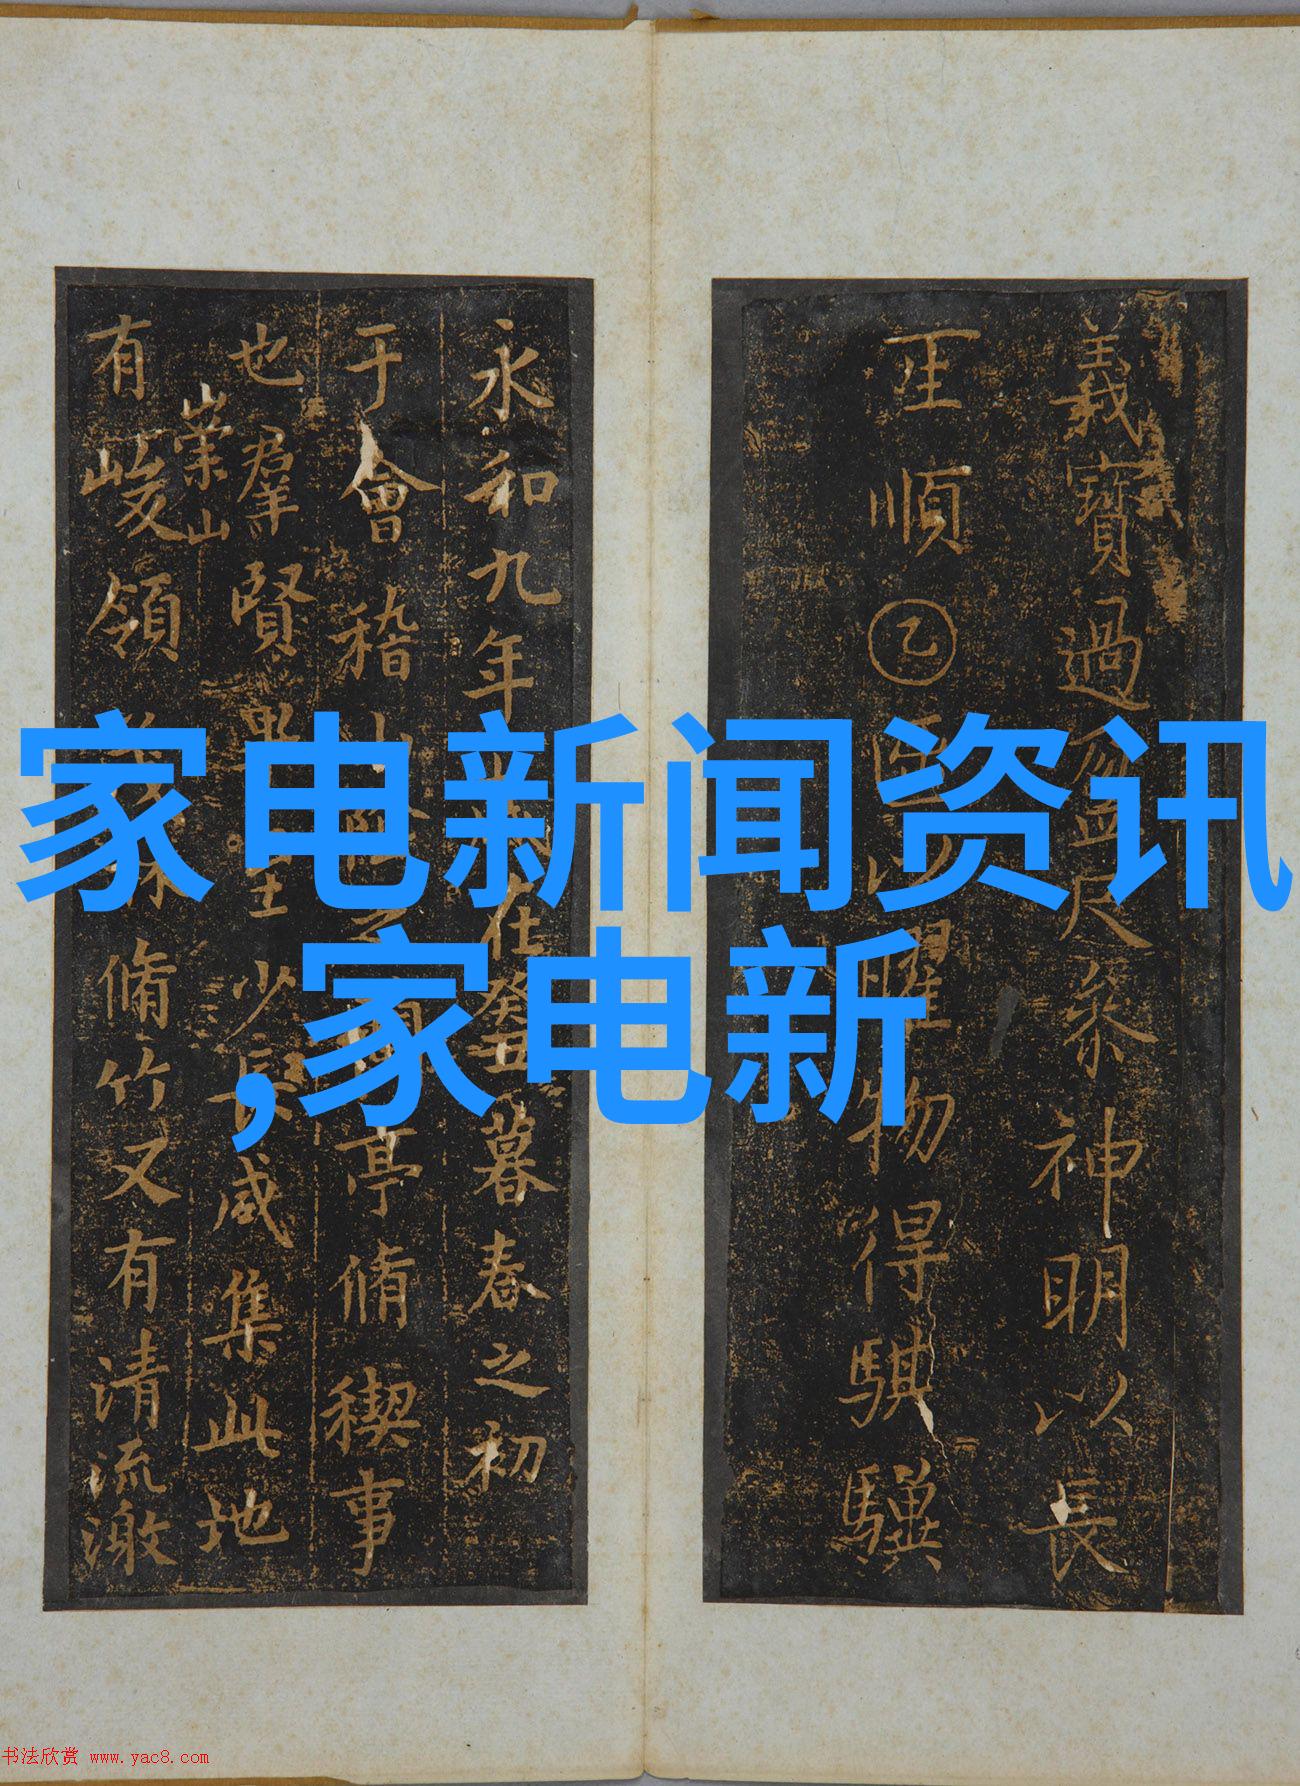 家电新闻资讯
,家电新
義寶過盈尺參神明以長
王順乙臣以曜物得騏驥
永和九年歲在癸丑暮春之初
于會稽山陰之蘭亭脩禊事
也羣賢畢至少長咸集此地
崇山
有峻領茂林脩竹又有清流激
书法欣赏 www.yac8.com